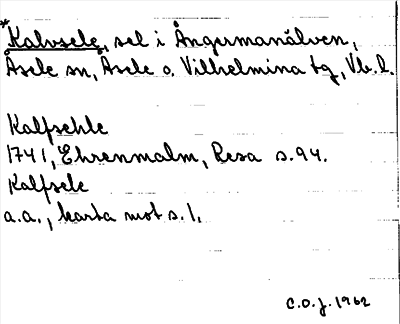 *Kalvsele, sel i Ångermanälven,
Åsele sn, Åsele o. Vilhelmina tg, Vb.l.
Kalfsehle
1741, Ehrenmalm, Resa s.94.
Kalfsele
a.a., karta mot s.1.
C.O.J. 1962